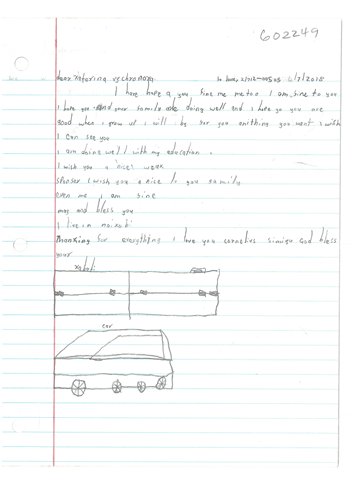 602249
dear
I have hope q you fine me metoo I am fine to you
I hope you and your family are doing well and I hope go you are
good when I grow up I will by for you anithing you want I wish
I can see you
I am doing well with my education.
I wish you a nice week
I wish you a nice to you family
even me I am fine
may god bless you
I live in noirobi
thanking for everything I love you cornelius simiyu God bless
your
car